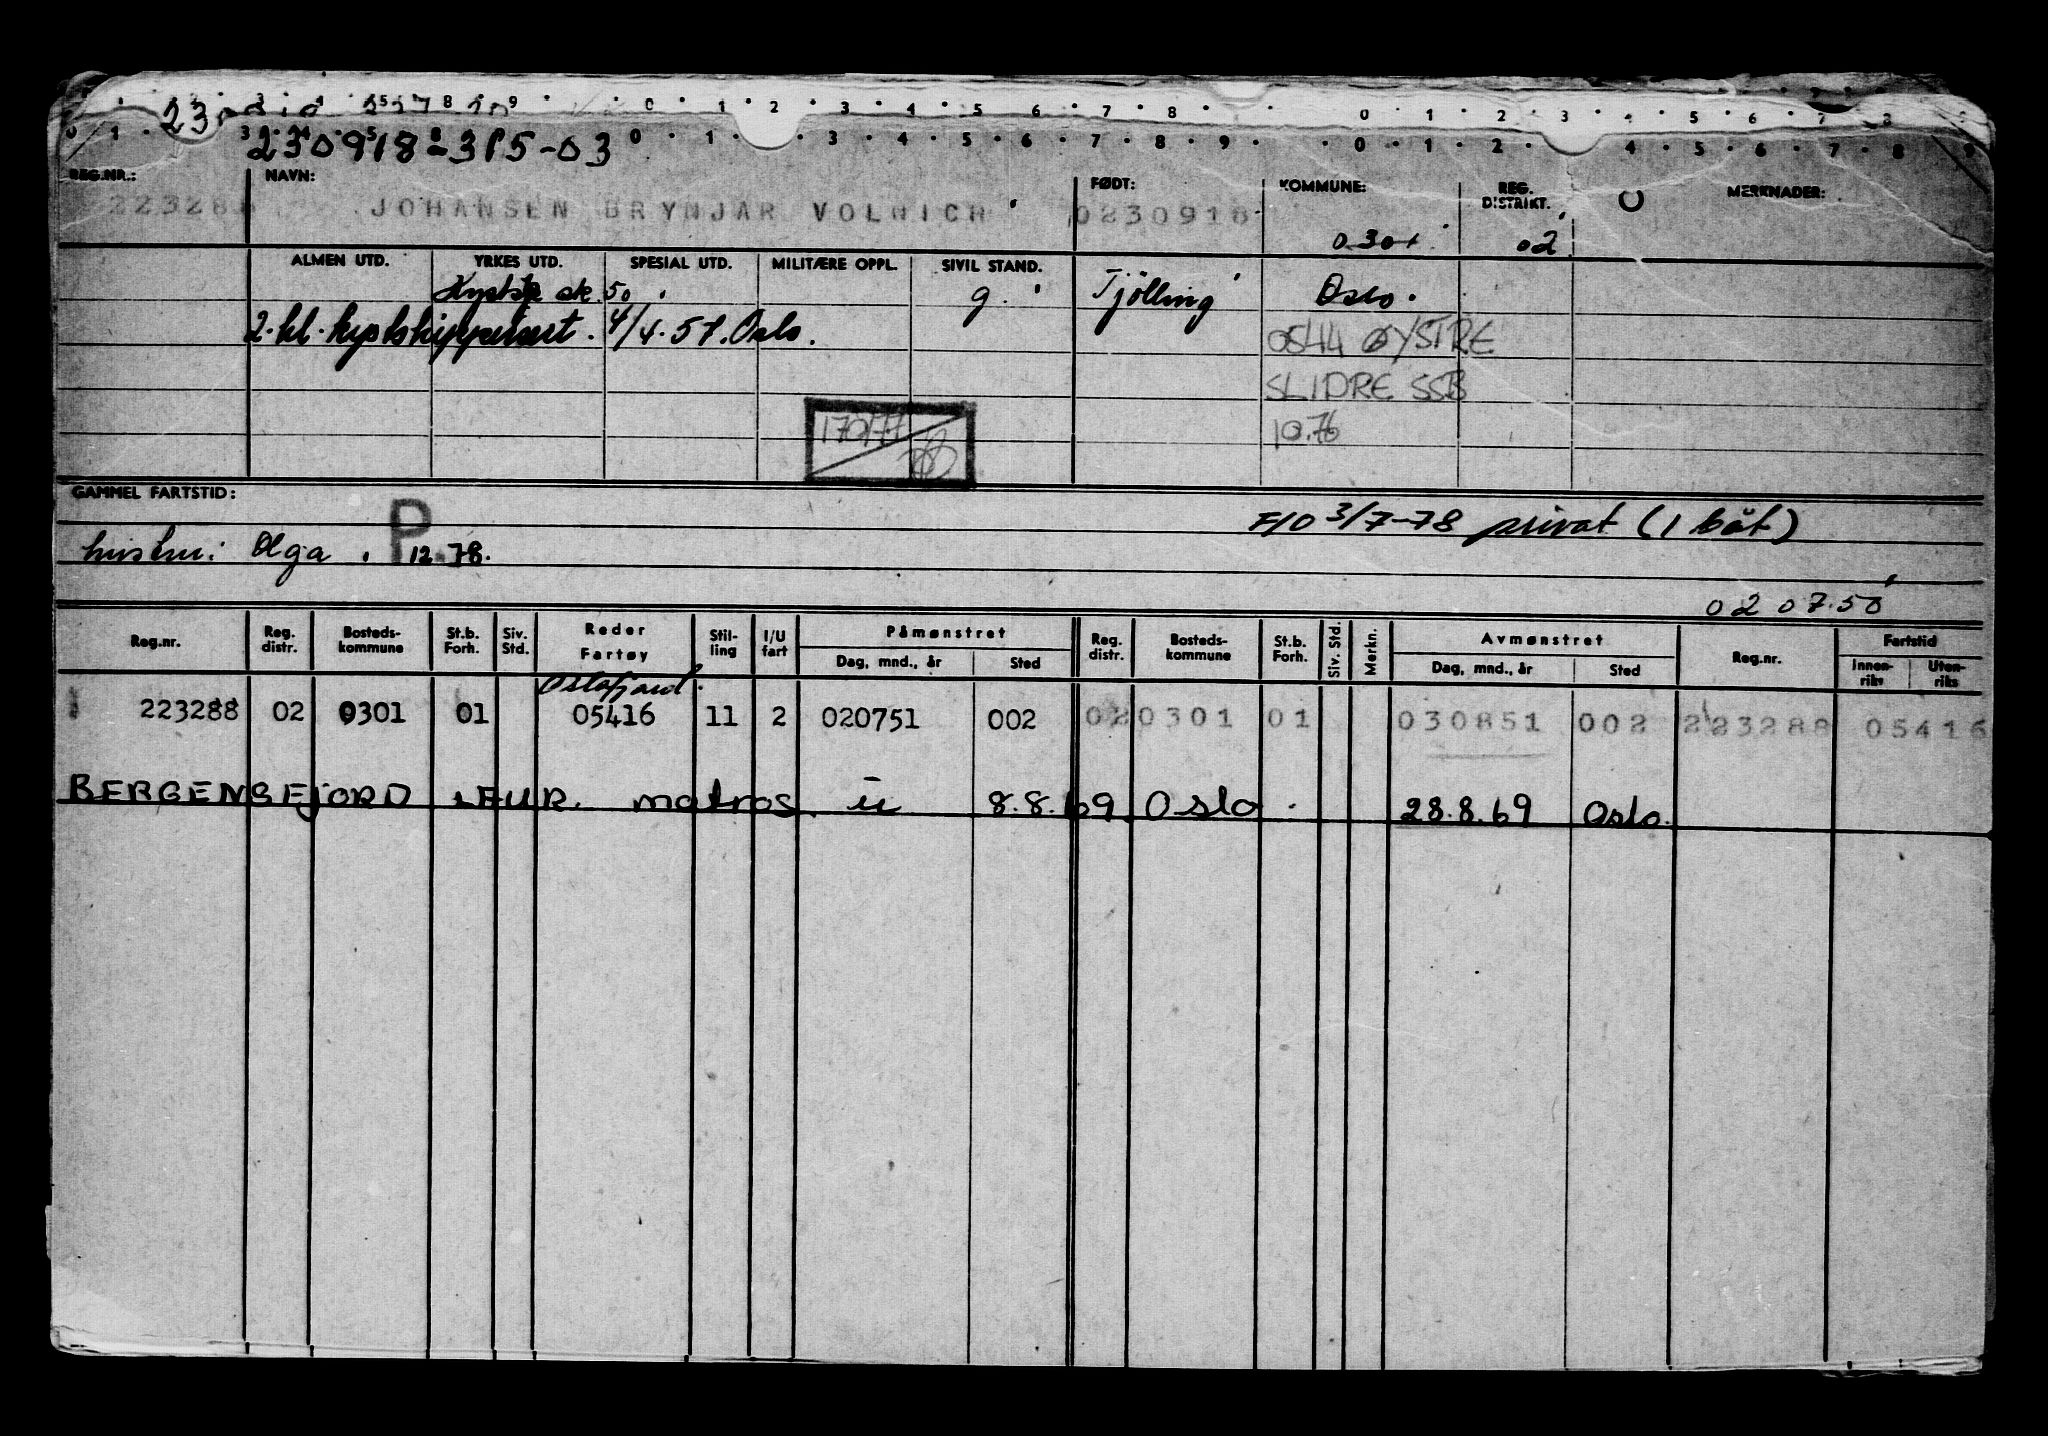 230918-315-03
REG.NR.: NAVN: FØDT: KOMMUNE: REG. DISTRIKT. MERKNADER:
223288 JOHANSEN BRYNJAR VOLRICH 0230918 0301 02
ALMEN UTD. YRKES UTD. SPESIAL UTD. MILITÆRE OPPL. SIVIL STAND.
sk. 50. g. Tjölling Oslo.
4/4.57. Oslo.
0544 ØYSTRE
SLIDRE SSB
10.76
170/77
GAMMEL FARTSTID:
F/O 3/7-78 privat (1 båt)
hustru: Olga. P 12.78.
02 07.50
Reg.nr. Reg. distr. Bosteds-kommune St.b. Forh. Siv. Std. Reder Fartøy Stil-ling I/U fart Påmønstret Reg. distr. Bosteds-kommune St.b. Forh. Siv. Std. Merkn. Avmønstret Reg.nr. Fartstid
Dag, mnd., år Sted Dag, mnd., år Sted Innen-riks Uten-riks
Oslofjord.
223288 02 0301 01 05416 11 2 020751 002 02 0301 01 030851 002 223288 05416
BERGENSFJORD matros u 8.8.69 Oslo. 28.8.69 Oslo.